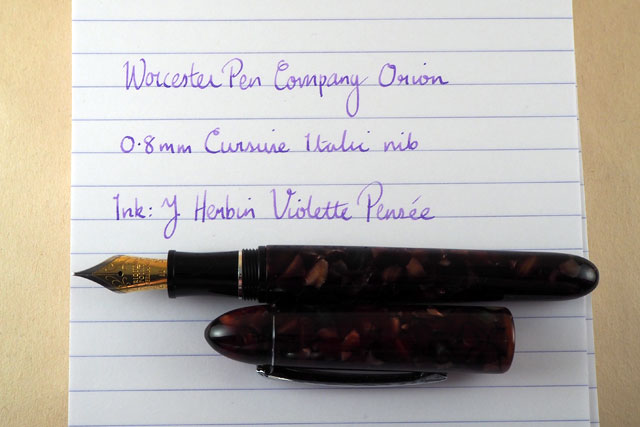 Worcester Pen Company Orion
0.8mm Cursive Italic nib
Ink: J Herbin Violette Pensée